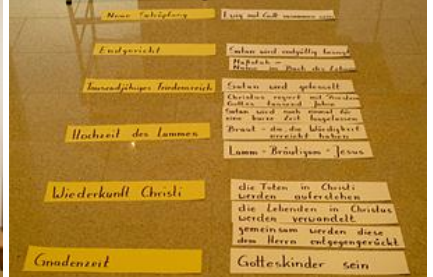 Neue Schöpfung
Ewig mit Gott
Endgericht
Satan wird endgültig besiegt
Maßstab -
Name im Buch des Lebens
Tausendjähriges Friedensreich
Satan wird gefesselt
Christus regiert mit Frieden
Gottes tausend Jahre
Satan wird noch einmal für
eine kurze Zeit losgelassen
Hochzeit des Lammes
Braut - da, die Würdigkeit
erreicht haben
Lamm - Bräutigam - Jesus
Wiederkunft Christi
die Toten in Christi
werden auferstehen
die Lebenden in Christus
werden verwandelt
gemeinsam werden diese
dem Herrn entgegengerückt
Gnadenzeit
Gotteskinder sein